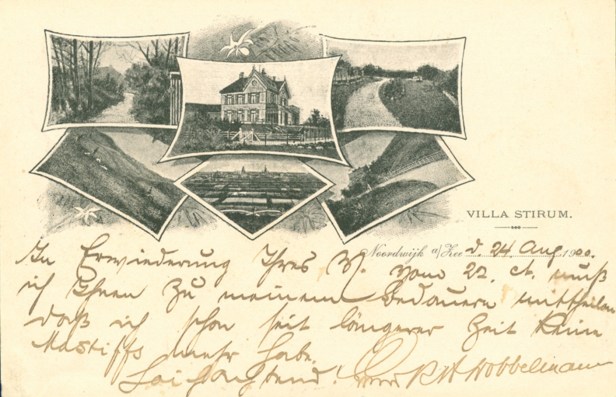 VILLA STIRUM.
Noordwijk a/Zee d. 24 Aug 1900.
In Erwiederung Ihres W. vom 22. ct. muß
ich Ihnen zu meinem Bedauern mittheilen
daß ich schon seit längerer Zeit keine
Mastiffs mehr habe.
Hobbelmann